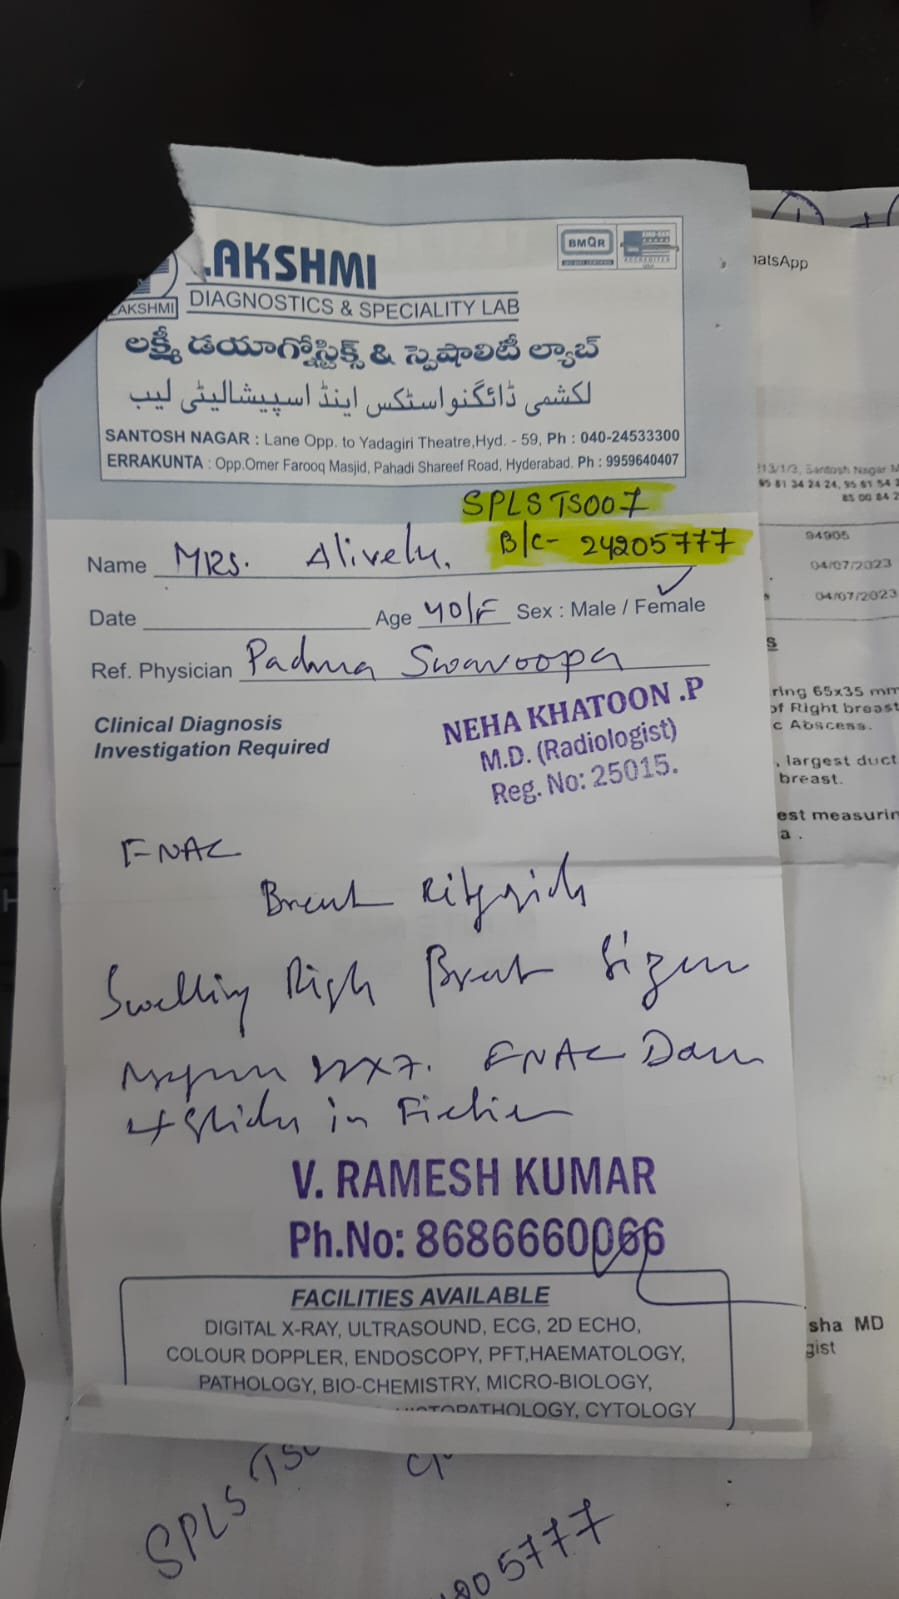 LAKSHMI
DIAGNOSTICS & SPECIALITY LAB
BMQR
LAKSHMI
లక్ష్మీ డయాగ్నోస్టిక్స్ & స్పెషాలిటీ ల్యాబ్
لکشمی ڈائگنواسٹکس اینڈ اسپیشالیٹی لیب
SANTOSH NAGAR : Lane Opp. to Yadagiri Theatre,Hyd. - 59, Ph : 040-24533300
ERRAKUNTA : Opp.Omer Farooq Masjid, Pahadi Shareef Road, Hyderabad. Ph : 9959640407
SPLSTS007
B/C- 24205777
Name MRS. Alivelu.
Date Age 40/F Sex : Male / Female
Ref. Physician Padma Swaroopa
Clinical Diagnosis
Investigation Required
NEHA KHATOON .P
M.D. (Radiologist)
Reg. No: 25015.
FNAC
Breast
Swelling Right Breast
FNAC
in
V. RAMESH KUMAR
Ph.No: 8686660066
FACILITIES AVAILABLE
DIGITAL X-RAY, ULTRASOUND, ECG, 2D ECHO,
COLOUR DOPPLER, ENDOSCOPY, PFT,HAEMATOLOGY,
PATHOLOGY, BIO-CHEMISTRY, MICRO-BIOLOGY,
HISTOPATHOLOGY, CYTOLOGY
hatsApp
13/1/3, Santosh Nagar M
95 81 34 24 24, 95 81 54 2
85 00 84 2
94905
04/07/2023
04/07/2023
s
ring 65x35 mm
of Right breast
c Abscess.
, largest duct
breast.
est measurin
a .
sha MD
gist
SPLS TS0
205777